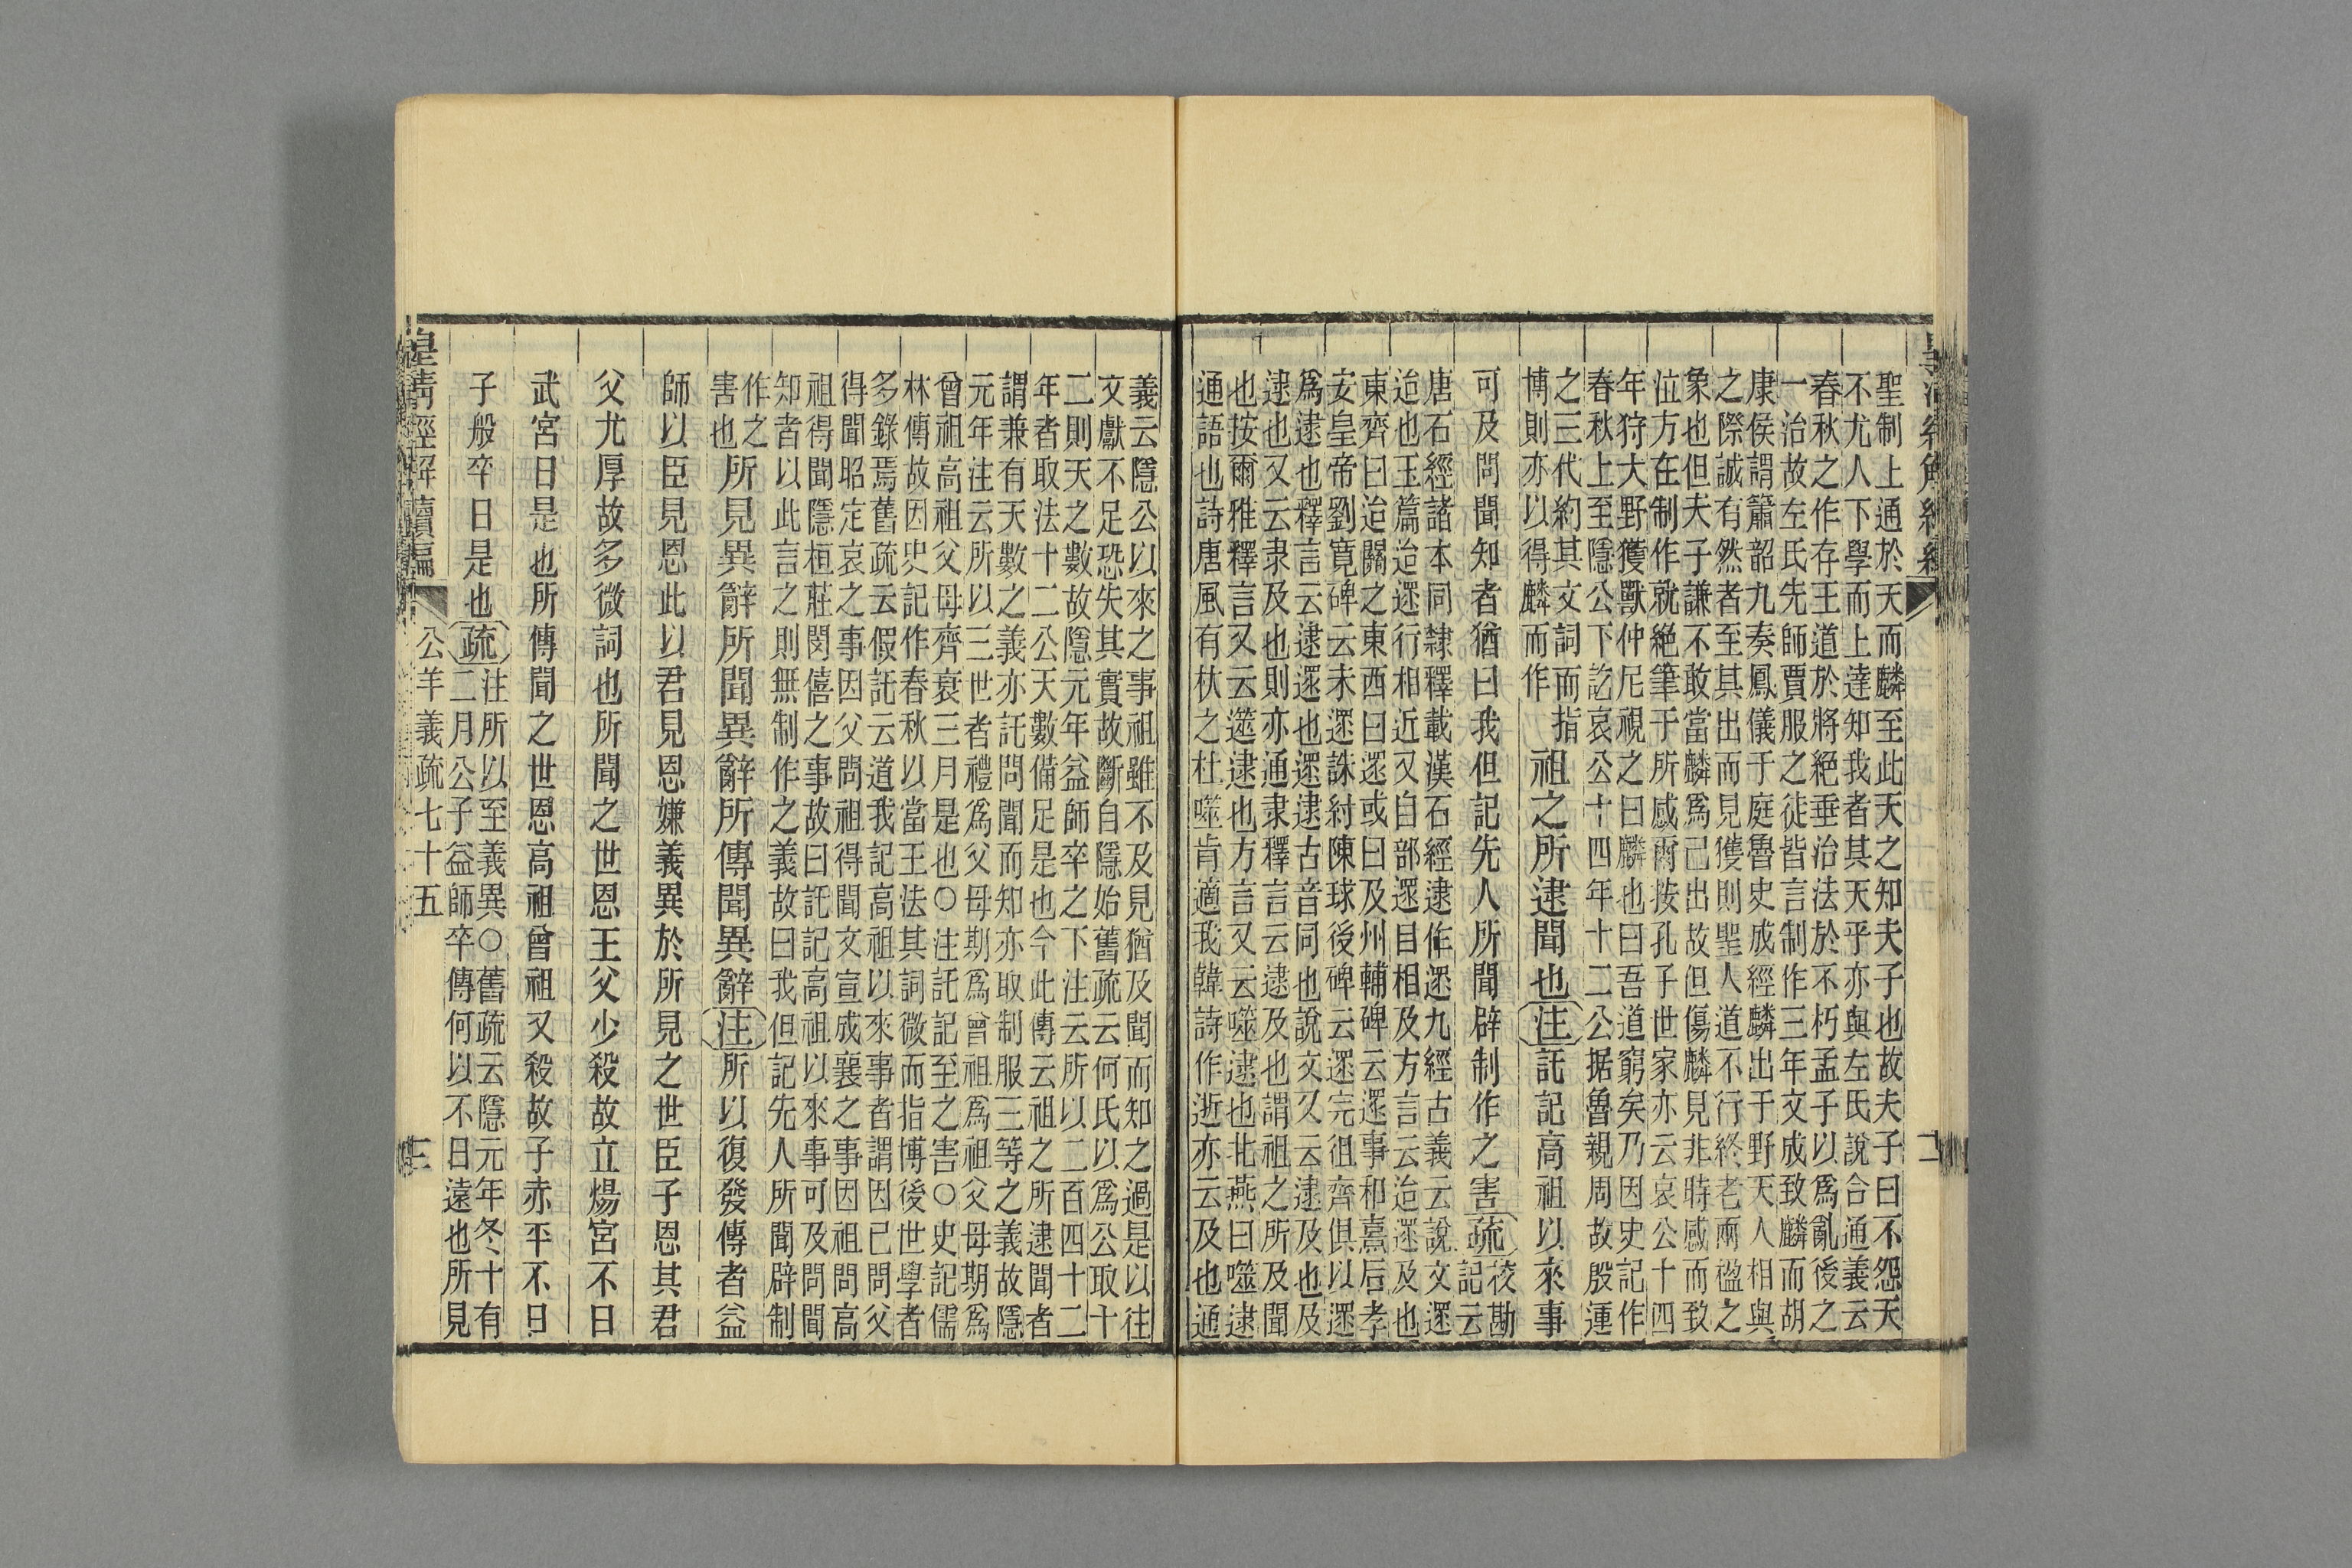 聖制上通於天而麟至此天之知夫子也故夫子曰不怨天
不尤人下學而上達知我者其天乎亦與左氏說合通義云
春秋之作存王道於將絕垂治法於不朽孟子以爲亂後之
一治故左氏先師賈服之徒皆言制作三年文成致麟而胡
康侯謂簫韶九奏鳳儀于庭魯史成經麟出于野天人相與
之際誠有然者至其出而見獲則聖人道不行終老兩楹之
象也但夫子謙不敢當麟爲已出故但傷麟見非時感而致
位方在制作就絕筆于所感爾按孔子世家亦云哀公十四
年狩大野獲獸仲尼視之曰麟也曰吾道窮矣乃因史記作
春秋上至隱公下訖哀公十四年十二公据魯親周故殷運
之三代約其文詞而指
博則亦以得麟而作
祖之所逮聞也注託記高祖以來事
可及問聞知者猶曰我但記先人所聞辟制作之害疏
校勘
記云
唐石經諸本同隸釋載漢石經逮作遝九經古義云說文遝
迨也玉篇迨遝行相近又自部遝目相及方言云迨遝及也
東齊曰迨關之東西曰遝或曰及州輔碑云遝事和熹后孝
安皇帝劉寬碑云未遝誅紂陳球後碑云遝完徂齊俱以遝
爲逮也釋言云逮遝也遝逮古音同也說文又云逮及也及
逮也又云隶及也則亦通隶釋言云逮及也謂祖之所及聞
也按爾雅釋言又云遾逮也方言又云噬逮也北燕曰噬逮
通語也詩唐風有杕之杜噬肯適我韓詩作逝亦云及也通
二
義云隱公以來之事祖雖不及見猶及聞而知之過是以往
文獻不足恐失其實故斷自隱始舊疏云何氏以爲公取十
二則天之數故隱元年益師卒之下注云所以二百四十二
年者取法十二公天數備足是也今此傳云祖之所逮聞者
謂兼有天數之義亦託問聞而知亦取制服三等之義故隱
元年注云所以三世者禮爲父母期爲曾祖爲祖父母期爲
曾祖高祖父母齊衰三月是也○注託記至之害○史記儒
林傳故因史記作春秋以當王法其詞微而指博後世學者
多錄焉舊疏云假託云道我記高祖以來事者謂因已問父
得聞昭定哀之事因父問祖得聞文宣成襄之事因祖問高
祖得聞隱桓莊閔僖之事故曰託記高祖以來事可及問聞
知者以此言之則無制作之義故曰我但記先人所聞辟制
作之
害也
所見異辭所聞異辭所傳聞異辭注所以復發傳者益
師以臣見恩此以君見恩嫌義異於所見之世臣子恩其君
父尤厚故多微詞也所聞之世恩王父少殺故立煬宮不日
武宮日是也所傳聞之世恩高祖曾祖又殺故子赤卒不日
子般卒日是也疏
注所以至義異○舊疏云隱元年冬十有
二月公子益師卒傳何以不日遠也所見
皇清經解續編
公羊義疏七十五
三